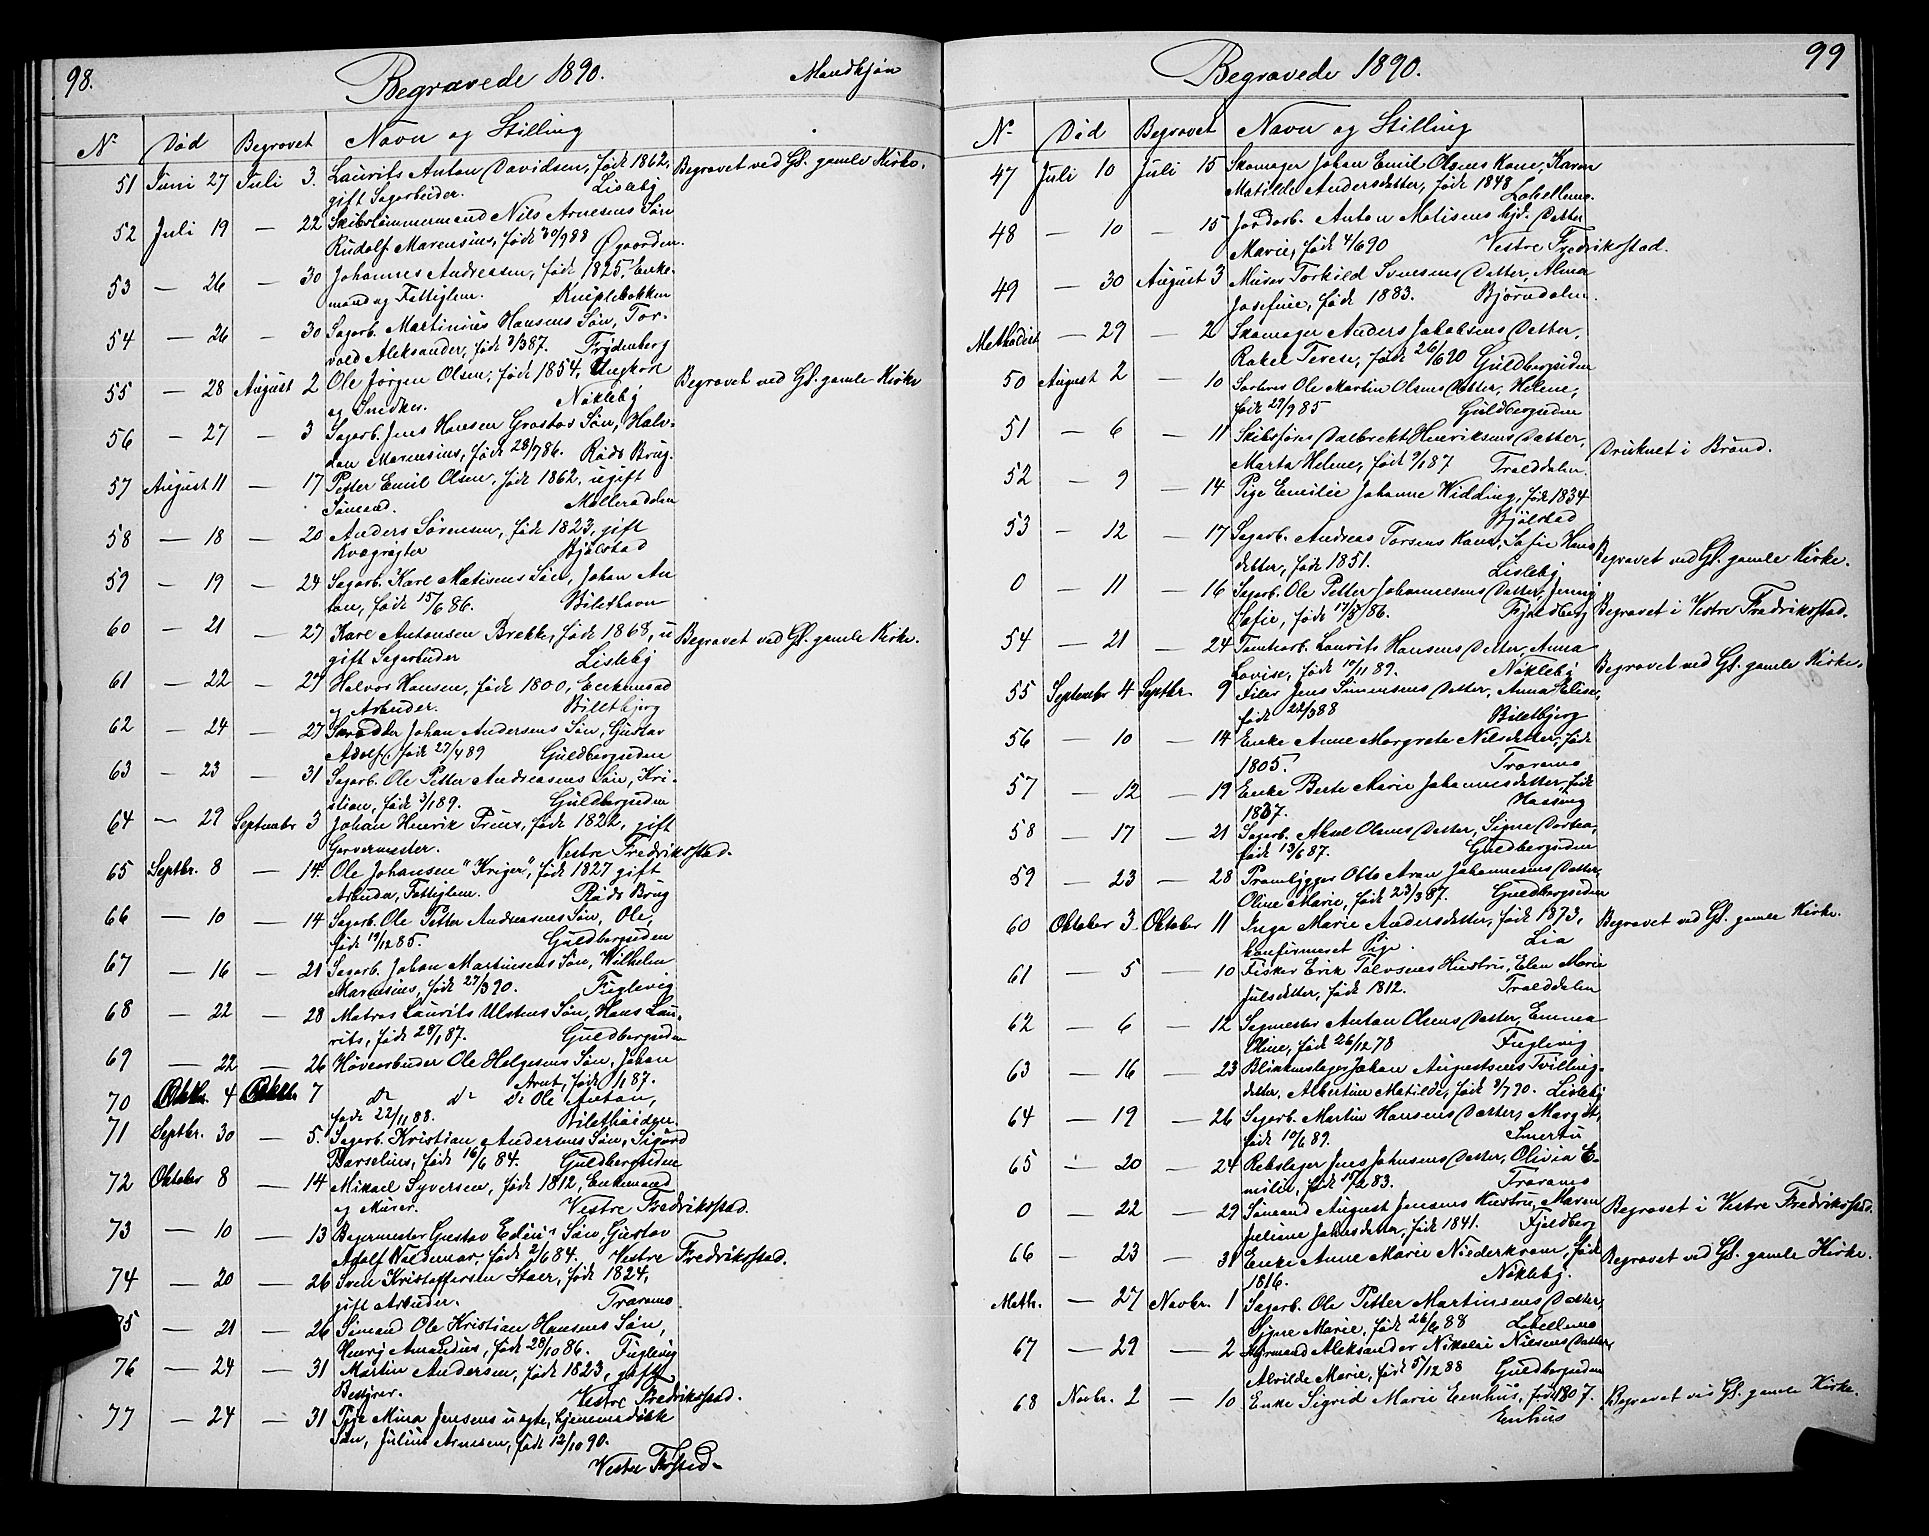 98.
Begravede 1890.
Mandkjøn
No Død Begravet Navn og Stilling
51 Juni 27 Juli 3. Laurits Anton Davidsen, født 1862, Begravet ved Gl. gamle Kirke.
gift Sagarbeider. Lisleby
52 Juli 19 — 22 Skibstømmermand Nils Arnesens Søn
Rudolf Marensius, født 30/9 88 Øgaarden
53 — 26 — 30 Johannes Andreasen, født 1825, Enke-
mand og Fattiglem. Kniplebakken
54 — 26 — 30 Sagarb. Martinius Hansens Søn, Tor-
vald Aleksander, født 3/3 87. Frydenberg
55 — 28 August 2 Ole Jørgen Olsen, født 1854, Ungkarl Begravet ved Gl. gamle Kirke
og Snedker. Nøkleby
56 — 27 — 3 Sagarb. Jens Hansen Svn, Halv-
dan Marensius, født 28/7 86. Røds Brug.
57 August 11 — 17 Petter Emil Olsen, født 1862, ugift
Sømand. Mølleradalen
58 — 18 — 20 Anders Sørensen, født 1823, gift
Kvægrøgter Bjølstad
59 — 19 — 24 Sagarb. Karl Matisens Søn, Johan An
ton, født 15/6 86.
60 — 21 — 27 Karl Antonsen Brekke, født 1868, u Begravet ved Gl. gamle Kirke.
gift Sagarbeider Lisleby
61 — 22 — 27 Halvor Hansen, født 1800, Enkemand
og Arbeider. Biletbjerg
62 — 24 — 27 Skrædder Johan Andersens Søn, Gustav
Adolf, født 27/4 89 Guldbergsiden
63 — 23 — 31 Sagarb. Ole Petter Andreasens Søn, Kri-
stian, født 3/1 89. Guldbergsiden
64 — 29 Septembr 3 Johan Henrik født 1822, gift
Garvermester. Vestre Fredriksstad.
65 Septbr. 8 — 14. Ole Johansen "Kriger", født 1827 gift
Arbeider, Fattiglem. Røds Brug
66 — 10 — 14 Sagarb. Ole Petter Andreasens Søn, Ole,
født 19/12 85. Guldbergsiden
67 — 16 — 21 Sagarb. Johan Martinsens Søn, Wilhelm
Marensius, født 27/3 90. Fuglevig
68 — 22 — 28 Matros Laurits Ulstens Søn, Hans Lau-
rits, født 28/1 87. Guldbergsiden
69 — 22 — 26 Høvlearbeider Ole Helgesens Søn, Johan
Arnt, født 1/1 87.
70 Oktbr. 4 Oktbr. 7 do do do Ole Anton,
født 22/11 88.
71 Septbr. 30 — 5. Sagarb. Kristian Andersens Søn, Sigurd
Barselius, født 16/6 84. Guldbergsiden
72 Oktober 8 — 14 Mikael Syversen, født 1812, Enkemand
og Murer. Vestre Fredriksstad.
73 — 10 — 13 Bagermester Gustav Edins Søn, Gustav
Adolf Valdemar, født 2/6 84. Vestre Fredriksstad.
74 — 20 — 26 Sven Kristoffersen født 1824,
gift Arbeider. Traramo
75 — 21 — 26 Sømand Ole Kristian Hansens Søn,
Henry Amandus, født 28/10 86. Fuglevig
76 — 24 — 31 Martin Andersen, født 1823, gift
Bestyrer. Vestre Fredriksstad.
77 — 24 — 31 Pige Mina Jensens uægte, hjemmedøbte
Søn, Julius Arnesen, født 12/10 90.
Vestre Frstad.
99
Begravede 1890.
No Død Begravet Navn og Stilling
47 Juli 10 Juli 15 Skomager Johan Emil Olsens Kone, Karen
Matilde Andersdatter, født 1848 Labellerne.
48 — 10 — 15 Jordarb. Anton Matisens hjd. Datter
Marie, født 4/6 90 Vestre Fredriksstad.
49 — 30 August 3 Murer Torkild Svensens Datter, Alma
Josefine, født 1883. Bjørndalen.
Methodist — 29 — 2 Skomager Anders Jakobsens Datter,
Rakel Terese, født 26/6 90 Guldbergsiden
50 August 2 — 10 Sorterer Ole Martin Olsens Datter, Helene,
født 29/9 85 Guldbergsiden
51 — 6 — 11 Skibsfører Dalbrekt Henriksens Datter, Druknet i Brønd.
Marta Helene, født 9/1 87 Traalddalen
52 — 9 — 14 Pige Emilie Johanne Widding, født 1834
Bjølstad
53 — 12 — 17 Sagarb. Andreas Torsens Kone, Sofie Hans Begravet ved Gl. gamle Kirke.
datter, født 1851. Lisleby
0 — 11 — 16 Sagarb. Ole Petter Johannesens Datter, Jenny Begravet i Vestre Fredriksstad.
Sofie, født 17/8 86. Fjeldberg
54 — 21 — 24 Tomtearb. Laurits Hansens Datter, Anna Begravet ved Gl. gamle Kirke.
Lovise, født 10/11 89. Nøkleby
55 Septembr 4 Septbr. 9 Filer Jens Simensens Datter, Anna Elise,
født 22/3 88 Biletbjerg
56 — 10 — 14 Enke Anne Margrete Nilsdatter, født
1805. Traramo
57 — 12 — 19 Enke Berte Marie Johannesdatter, født
1837. Haasing
58 — 17 — 21 Sagarb. Aksel Olsens Datter, Signe Dortea,
født 13/6 87. Guldbergsiden
59 — 23 — 28 Prambygger Otto Aron Johannesens Datter,
Oline Marie, født 23/3 87. Guldbergsiden
60 Oktober 3. Oktober 11 Inga Marie Andersdatter, født 1873, Begravet ved Gl. gamle Kirke.
konfirmeret Pige. Lia
61 — 5 — 10 Fisker Erik Talvsens Hustru, Elen Marie
Julsdatter, født 1812. Traalddalen
62 — 6 — 12 Sagmester Anton Olsens Datter, Emma
Oline, født 26/12 78 Fuglevig
63 — 16 — 23 Blikkenslager Johan Augustsens Tvilling-
datter, Albertine Matilde, født 3/7 90. Lisleby
64 — 19 — 26 Sagarb. Martin Hansens Datter, Margit,
født 10/6 89. Smertu
65 — 20 — 24 Rebslager Jens Johnsens Datter, Olivia E-
milie, født 15/12 83. Traramo
0 — 22 — 29 Sømand August Jensens Hustru, Maren Begravet i Vestre Fredriksstad.
Juliane født 1841. Fjeldberg
66 — 23 — 31 Enke Anne Marie Niederkrom, født Begravet ved Gl. gamle Kirke.
1816. Nøkleby.
Meth. — 27 Novbr. 1 Sagarb. Ole Petter Martinsens Datter,
Signe Marie, født 26/6 88 Labellerne
67 — 29 — 2 Styrmand Aleksander Nikolai Nilsens Datter
Alvilde Marie, født 5/12 88 Guldbergsiden
68 Novbr. 2 — 10 Enke Sigrid Marie Eenhus, født 1807. Begravet ved Gl. gamle Kirke.
Enhus